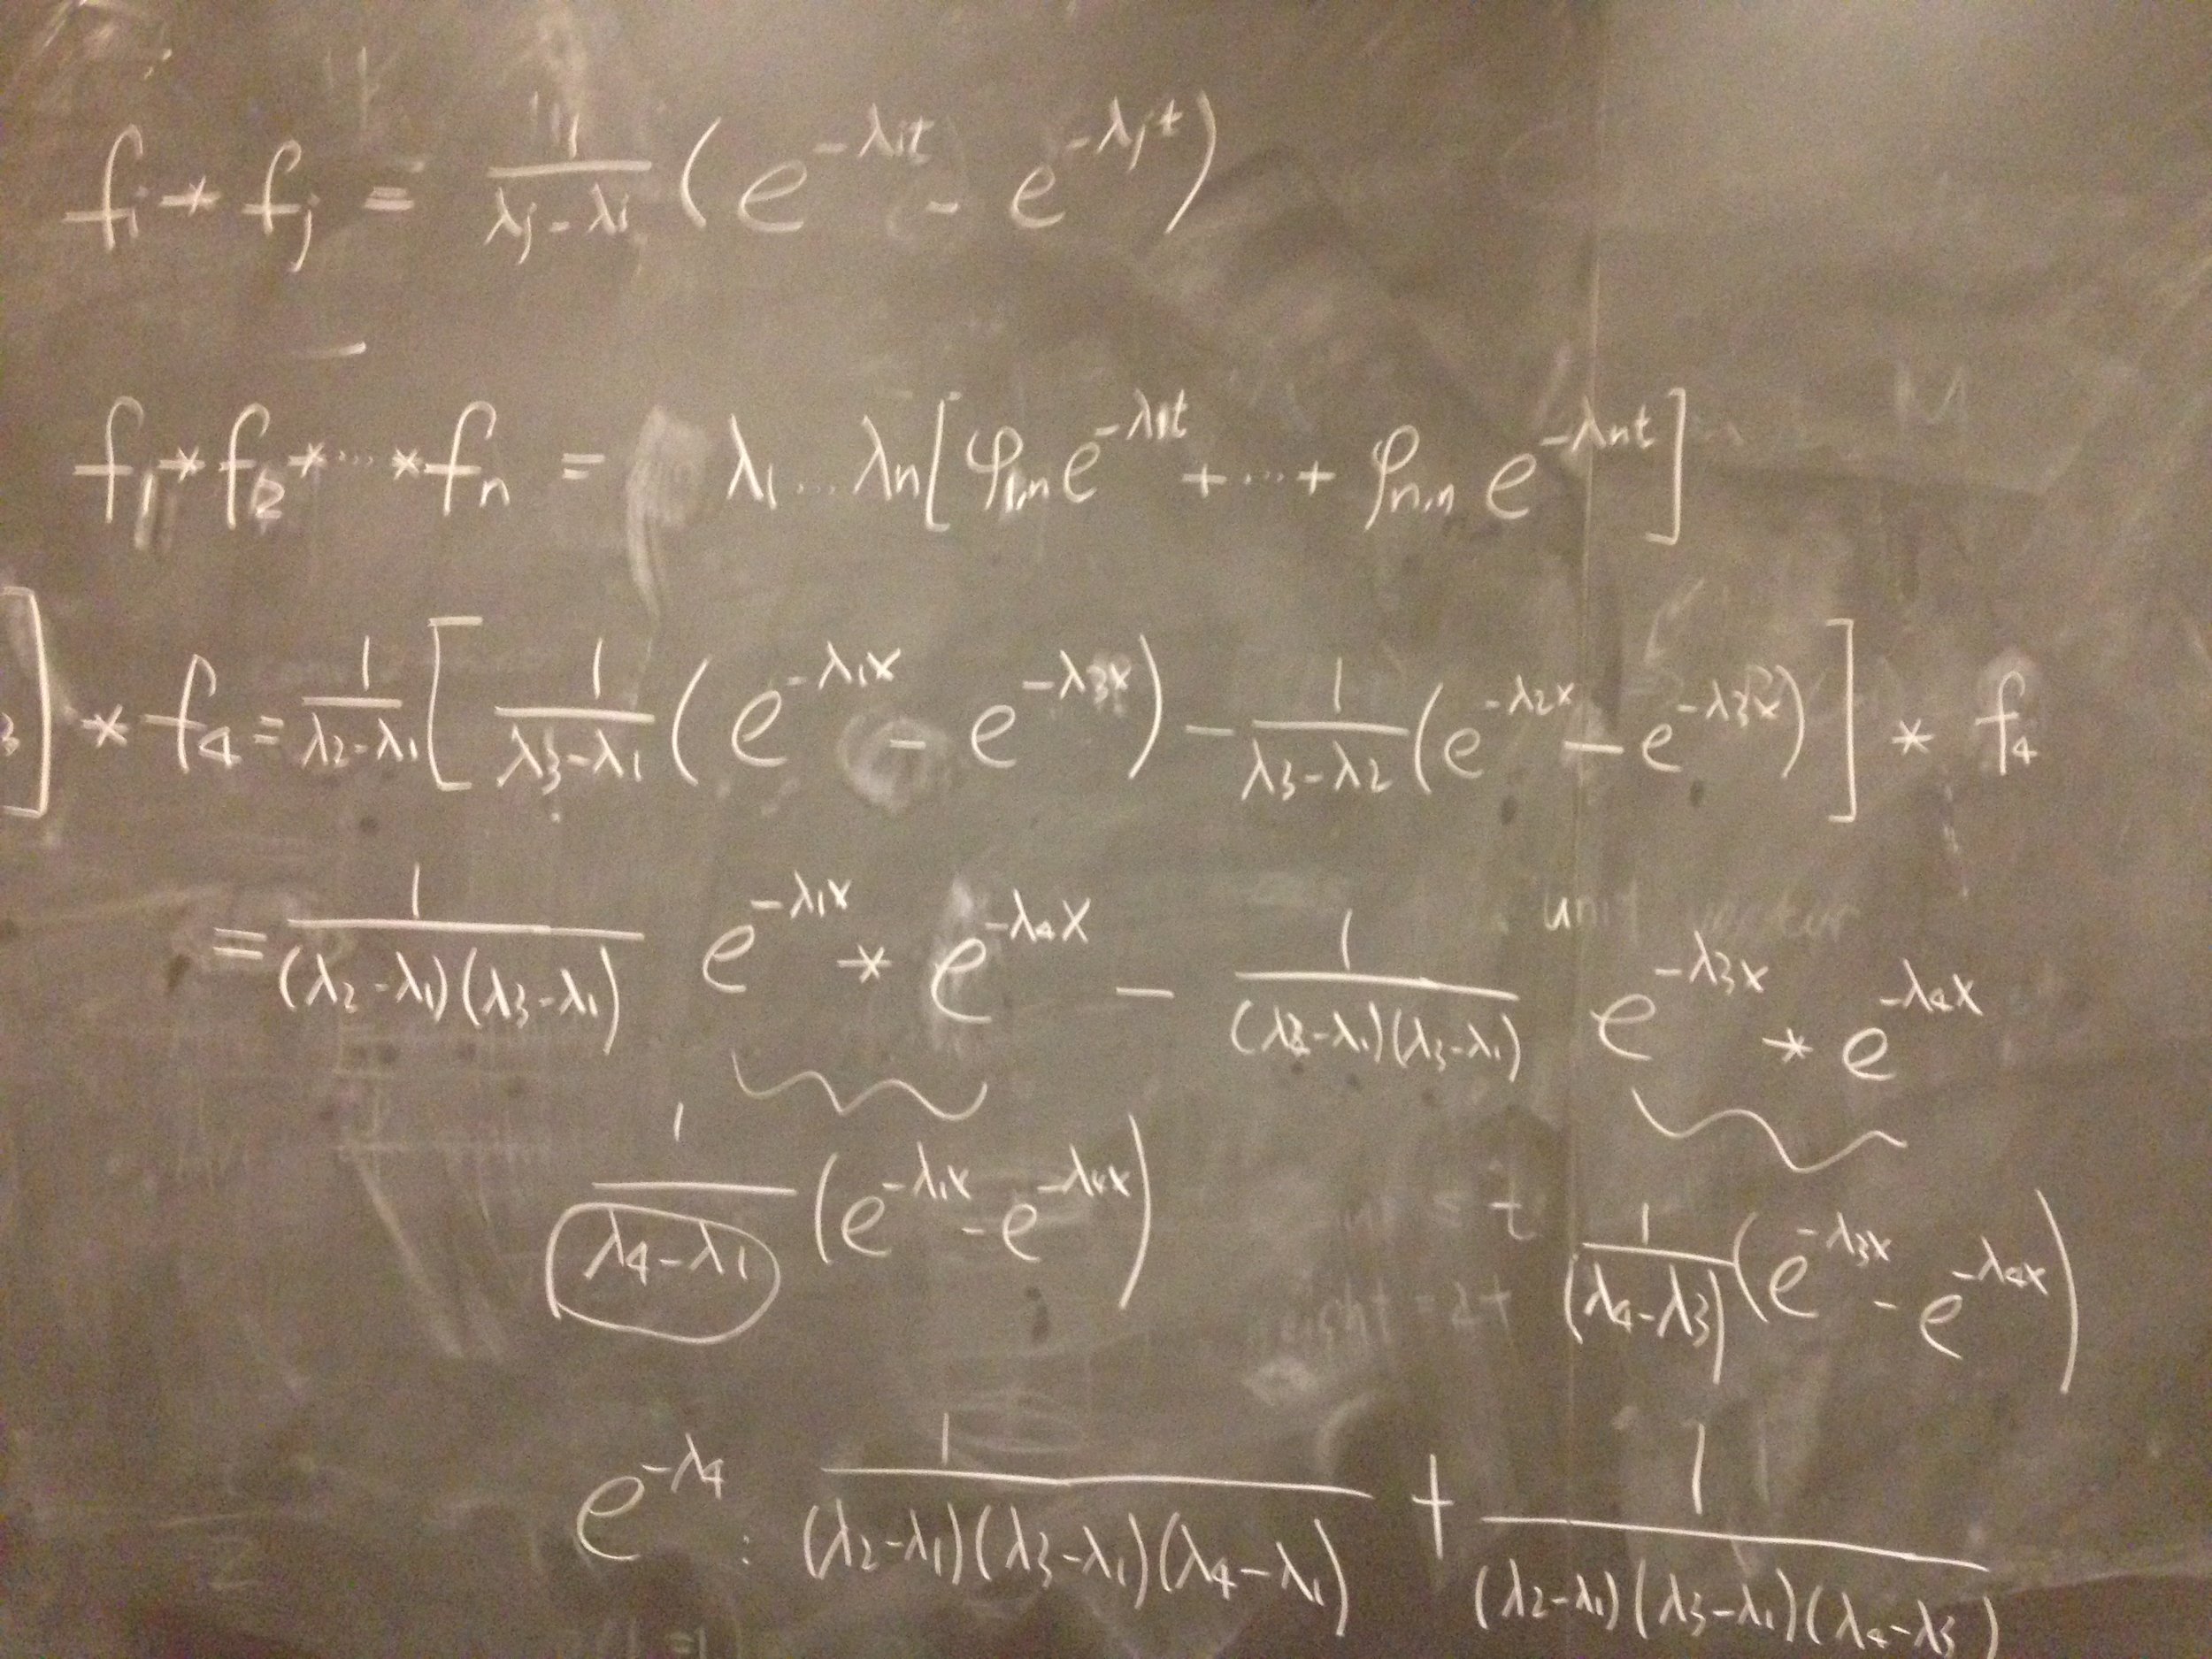 f_i * f_j = 1/(λ_j - λ_i) (e^{-λ_i t} - e^{-λ_j t})
f_1 * f_2 * ... * f_n = λ_1 ... λ_n [φ_{1,n} e^{-λ_1 t} + ... + φ_{n,n} e^{-λ_n t}]
3] * f_4 = 1/(λ_2 - λ_1) [1/(λ_3 - λ_1) (e^{-λ_1 x} - e^{-λ_3 x}) - 1/(λ_3 - λ_2) (e^{-λ_2 x} - e^{-λ_3 x})] * f_4
unit vector
= 1/((λ_2 - λ_1)(λ_3 - λ_1)) e^{-λ_1 x} * e^{-λ_4 x} - 1/((λ_2 - λ_1)(λ_3 - λ_1)) e^{-λ_3 x} * e^{-λ_4 x}
1/(λ_4 - λ_1) (e^{-λ_1 x} - e^{-λ_4 x}) = t 1/(λ_4 - λ_3) (e^{-λ_3 x} - e^{-λ_4 x})
= 2t
e^{-λ_4} : 1/((λ_2 - λ_1)(λ_3 - λ_1)(λ_4 - λ_1)) + 1/((λ_2 - λ_1)(λ_3 - λ_1)(λ_4 - λ_3))